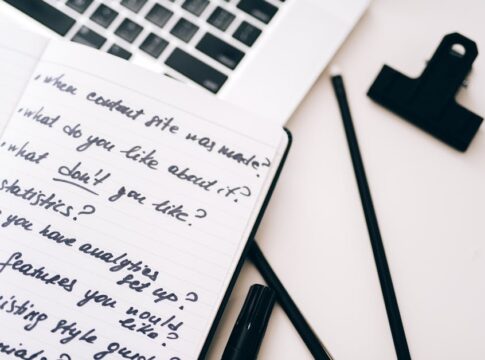 . when content site was made?
. what do you like about it?
. what don't you like?
statistics?
you have analytics
set up?
features you would
like?
existing style guide